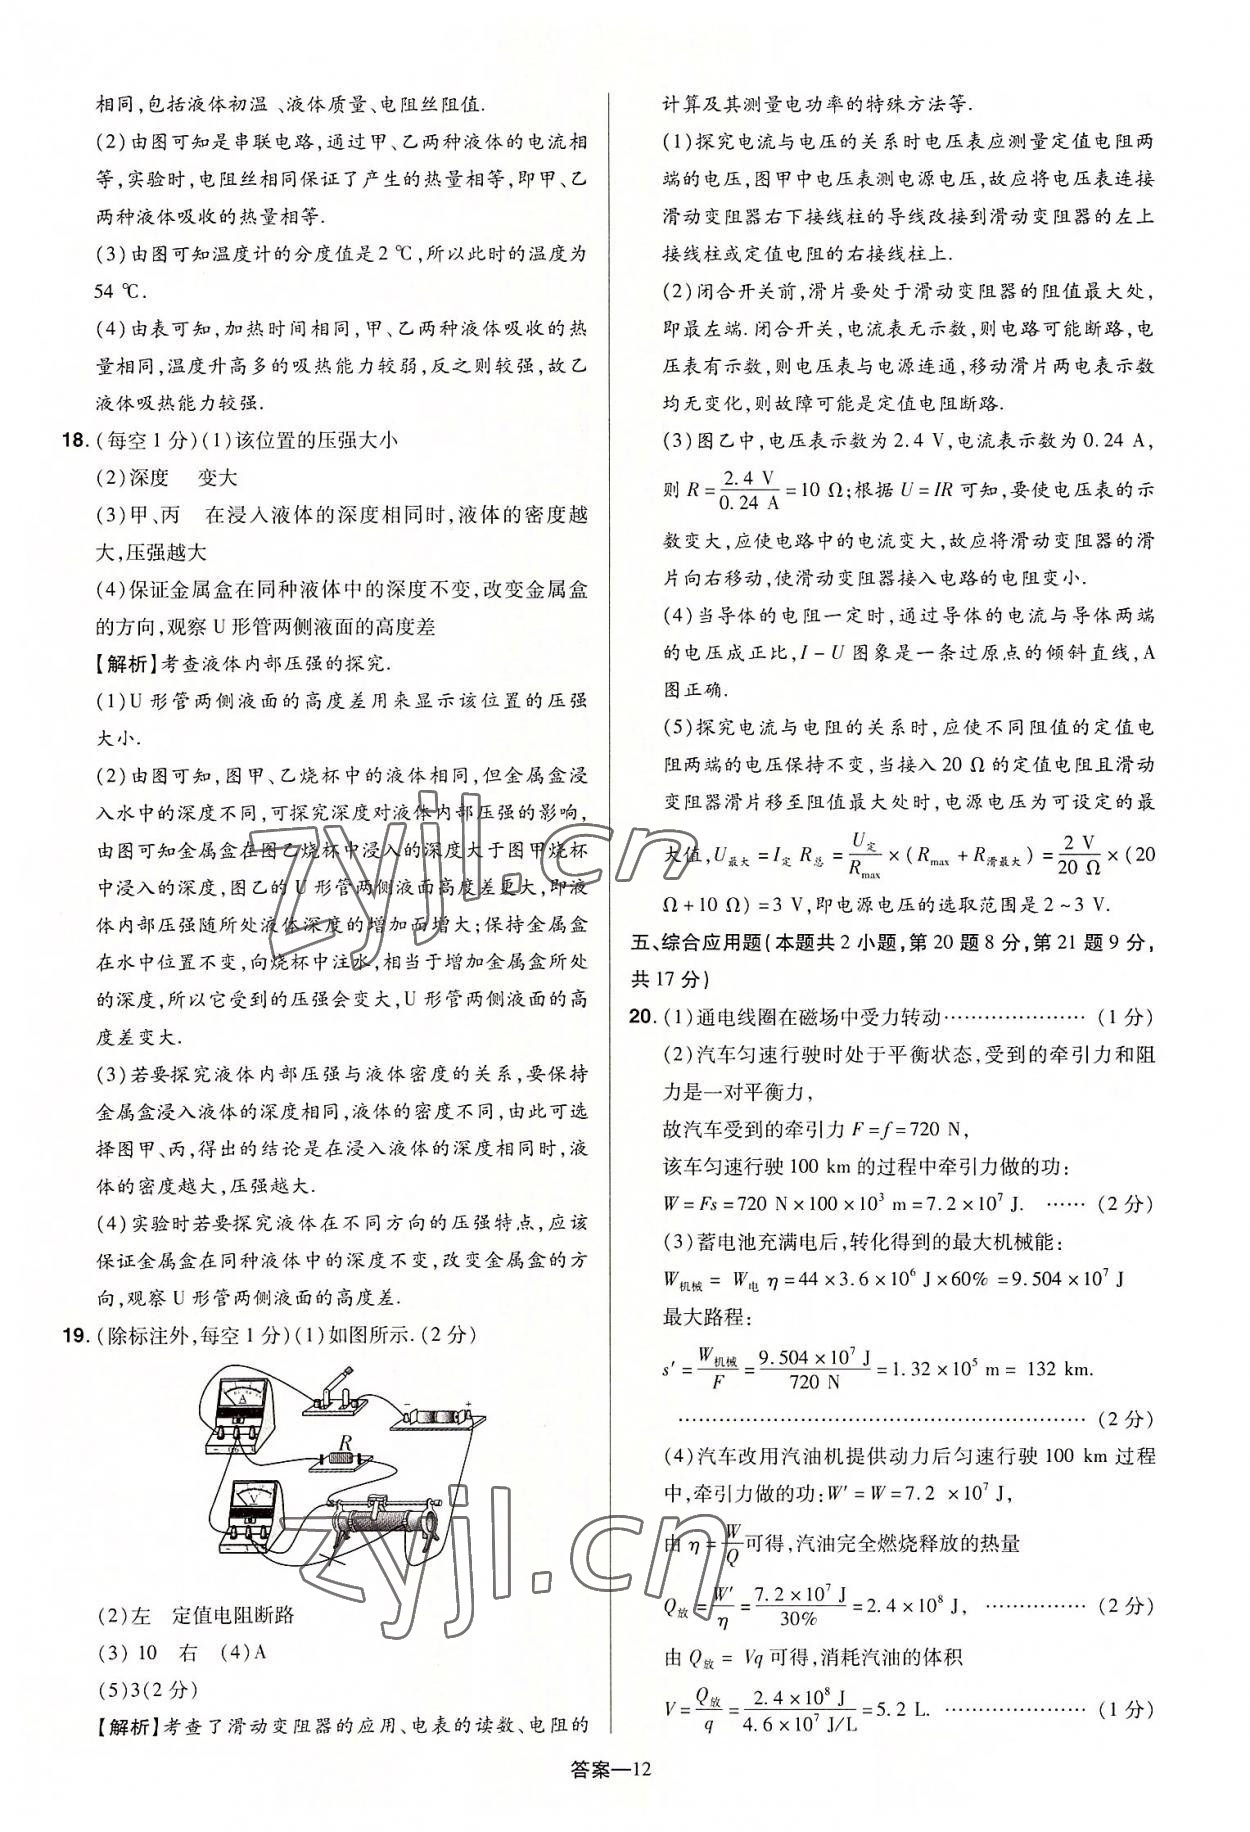 相同,包括液体初温、液体质量、电阻丝阻值.
(2)由图可知是串联电路,通过甲、乙两种液体的电流相
等,实验时,电阻丝相同保证了产生的热量相等,即甲、乙
两种液体吸收的热量相等.
(3)由图可知温度计的分度值是2 ℃,所以此时的温度为
54 ℃.
(4)由表可知,加热时间相同,甲、乙两种液体吸收的热
量相同,温度升高多的吸热能力较弱,反之则较强,故乙
液体吸热能力较强.
18.(每空1分)(1)该位置的压强大小
(2)深度 变大
(3)甲、丙 在浸入液体的深度相同时,液体的密度越
大,压强越大
(4)保证金属盒在同种液体中的深度不变,改变金属盒
的方向,观察U形管两侧液面的高度差
【解析】考查液体内部压强的探究.
(1)U形管两侧液面的高度差用来显示该位置的压强
大小.
(2)由图可知,图甲、乙烧杯中的液体相同,但金属盒浸
入水中的深度不同,可探究深度对液体内部压强的影响,
由图可知金属盒在图乙烧杯中浸入的深度大于图甲烧杯
中浸入的深度,图乙的U形管两侧液面高度差更大,即液
体内部压强随所处液体深度的增加而增大;保持金属盒
在水中位置不变,向烧杯中注水,相当于增加金属盒所处
的深度,所以它受到的压强会变大,U形管两侧液面的高
度差变大.
(3)若要探究液体内部压强与液体密度的关系,要保持
金属盒浸入液体的深度相同,液体的密度不同,由此可选
择图甲、丙,得出的结论是在浸入液体的深度相同时,液
体的密度越大,压强越大.
(4)实验时若要探究液体在不同方向的压强特点,应该
保证金属盒在同种液体中的深度不变,改变金属盒的方
向,观察U形管两侧液面的高度差.
19.(除标注外,每空1分)(1)如图所示.(2分)
A
R
V
− +
(2)左 定值电阻断路
(3) 10 右 (4)A
(5)3(2分)
【解析】考查了滑动变阻器的应用、电表的读数、电阻的
计算及其测量电功率的特殊方法等.
(1)探究电流与电压的关系时电压表应测量定值电阻两
端的电压,图甲中电压表测电源电压,故应将电压表连接
滑动变阻器右下接线柱的导线改接到滑动变阻器的左上
接线柱或定值电阻的右接线柱上.
(2)闭合开关前,滑片要处于滑动变阻器的阻值最大处,
即最左端.闭合开关,电流表无示数,则电路可能断路,电
压表有示数,则电压表与电源连通,移动滑片两电表示数
均无变化,则故障可能是定值电阻断路.
(3)图乙中,电压表示数为2.4 V,电流表示数为0.24 A,
则R=2.4 V/0.24 A=10 Ω;根据U=IR可知,要使电压表的示
数变大,应使电路中的电流变大,故应将滑动变阻器的滑
片向右移动,使滑动变阻器接入电路的电阻变小.
(4)当导体的电阻一定时,通过导体的电流与导体两端
的电压成正比,I-U图象是一条过原点的倾斜直线,A
图正确.
(5)探究电流与电阻的关系时,应使不同阻值的定值电
阻两端的电压保持不变,当接入20 Ω的定值电阻且滑动
变阻器滑片移至阻值最大处时,电源电压为可设定的最
大值,U最大=I定R总=U定/Rmax×(Rmax+R滑最大)=2 V/20 Ω×(20
Ω+10 Ω)=3 V,即电源电压的选取范围是2~3 V.
五、综合应用题(本题共2小题,第20题8分,第21题9分,
共17分)
20.(1)通电线圈在磁场中受力转动…………………(1分)
(2)汽车匀速行驶时处于平衡状态,受到的牵引力和阻
力是一对平衡力,
故汽车受到的牵引力F=f=720 N,
该车匀速行驶100 km的过程中牵引力做的功:
W=Fs=720 N×100×10³ m=7.2×10⁷ J. ……(2分)
(3)蓄电池充满电后,转化得到的最大机械能:
W机械=W电η=44×3.6×10⁶ J×60%=9.504×10⁷ J
最大路程:
s′=W机械/F=9.504×10⁷ J/720 N=1.32×10⁵ m=132 km.
……………………………………………………(2分)
(4)汽车改用汽油机提供动力后匀速行驶100 km过程
中,牵引力做的功:W′=W=7.2×10⁷ J,
由η=W/Q可得,汽油完全燃烧释放的热量
Q放=W′/η=7.2×10⁷ J/30%=2.4×10⁸ J, ……………(2分)
由Q放=Vq可得,消耗汽油的体积
V=Q放/q=2.4×10⁸ J/4.6×10⁷ J/L=5.2 L. …………………(1分)
答案—12
zyjl.cn
zyjl.cn